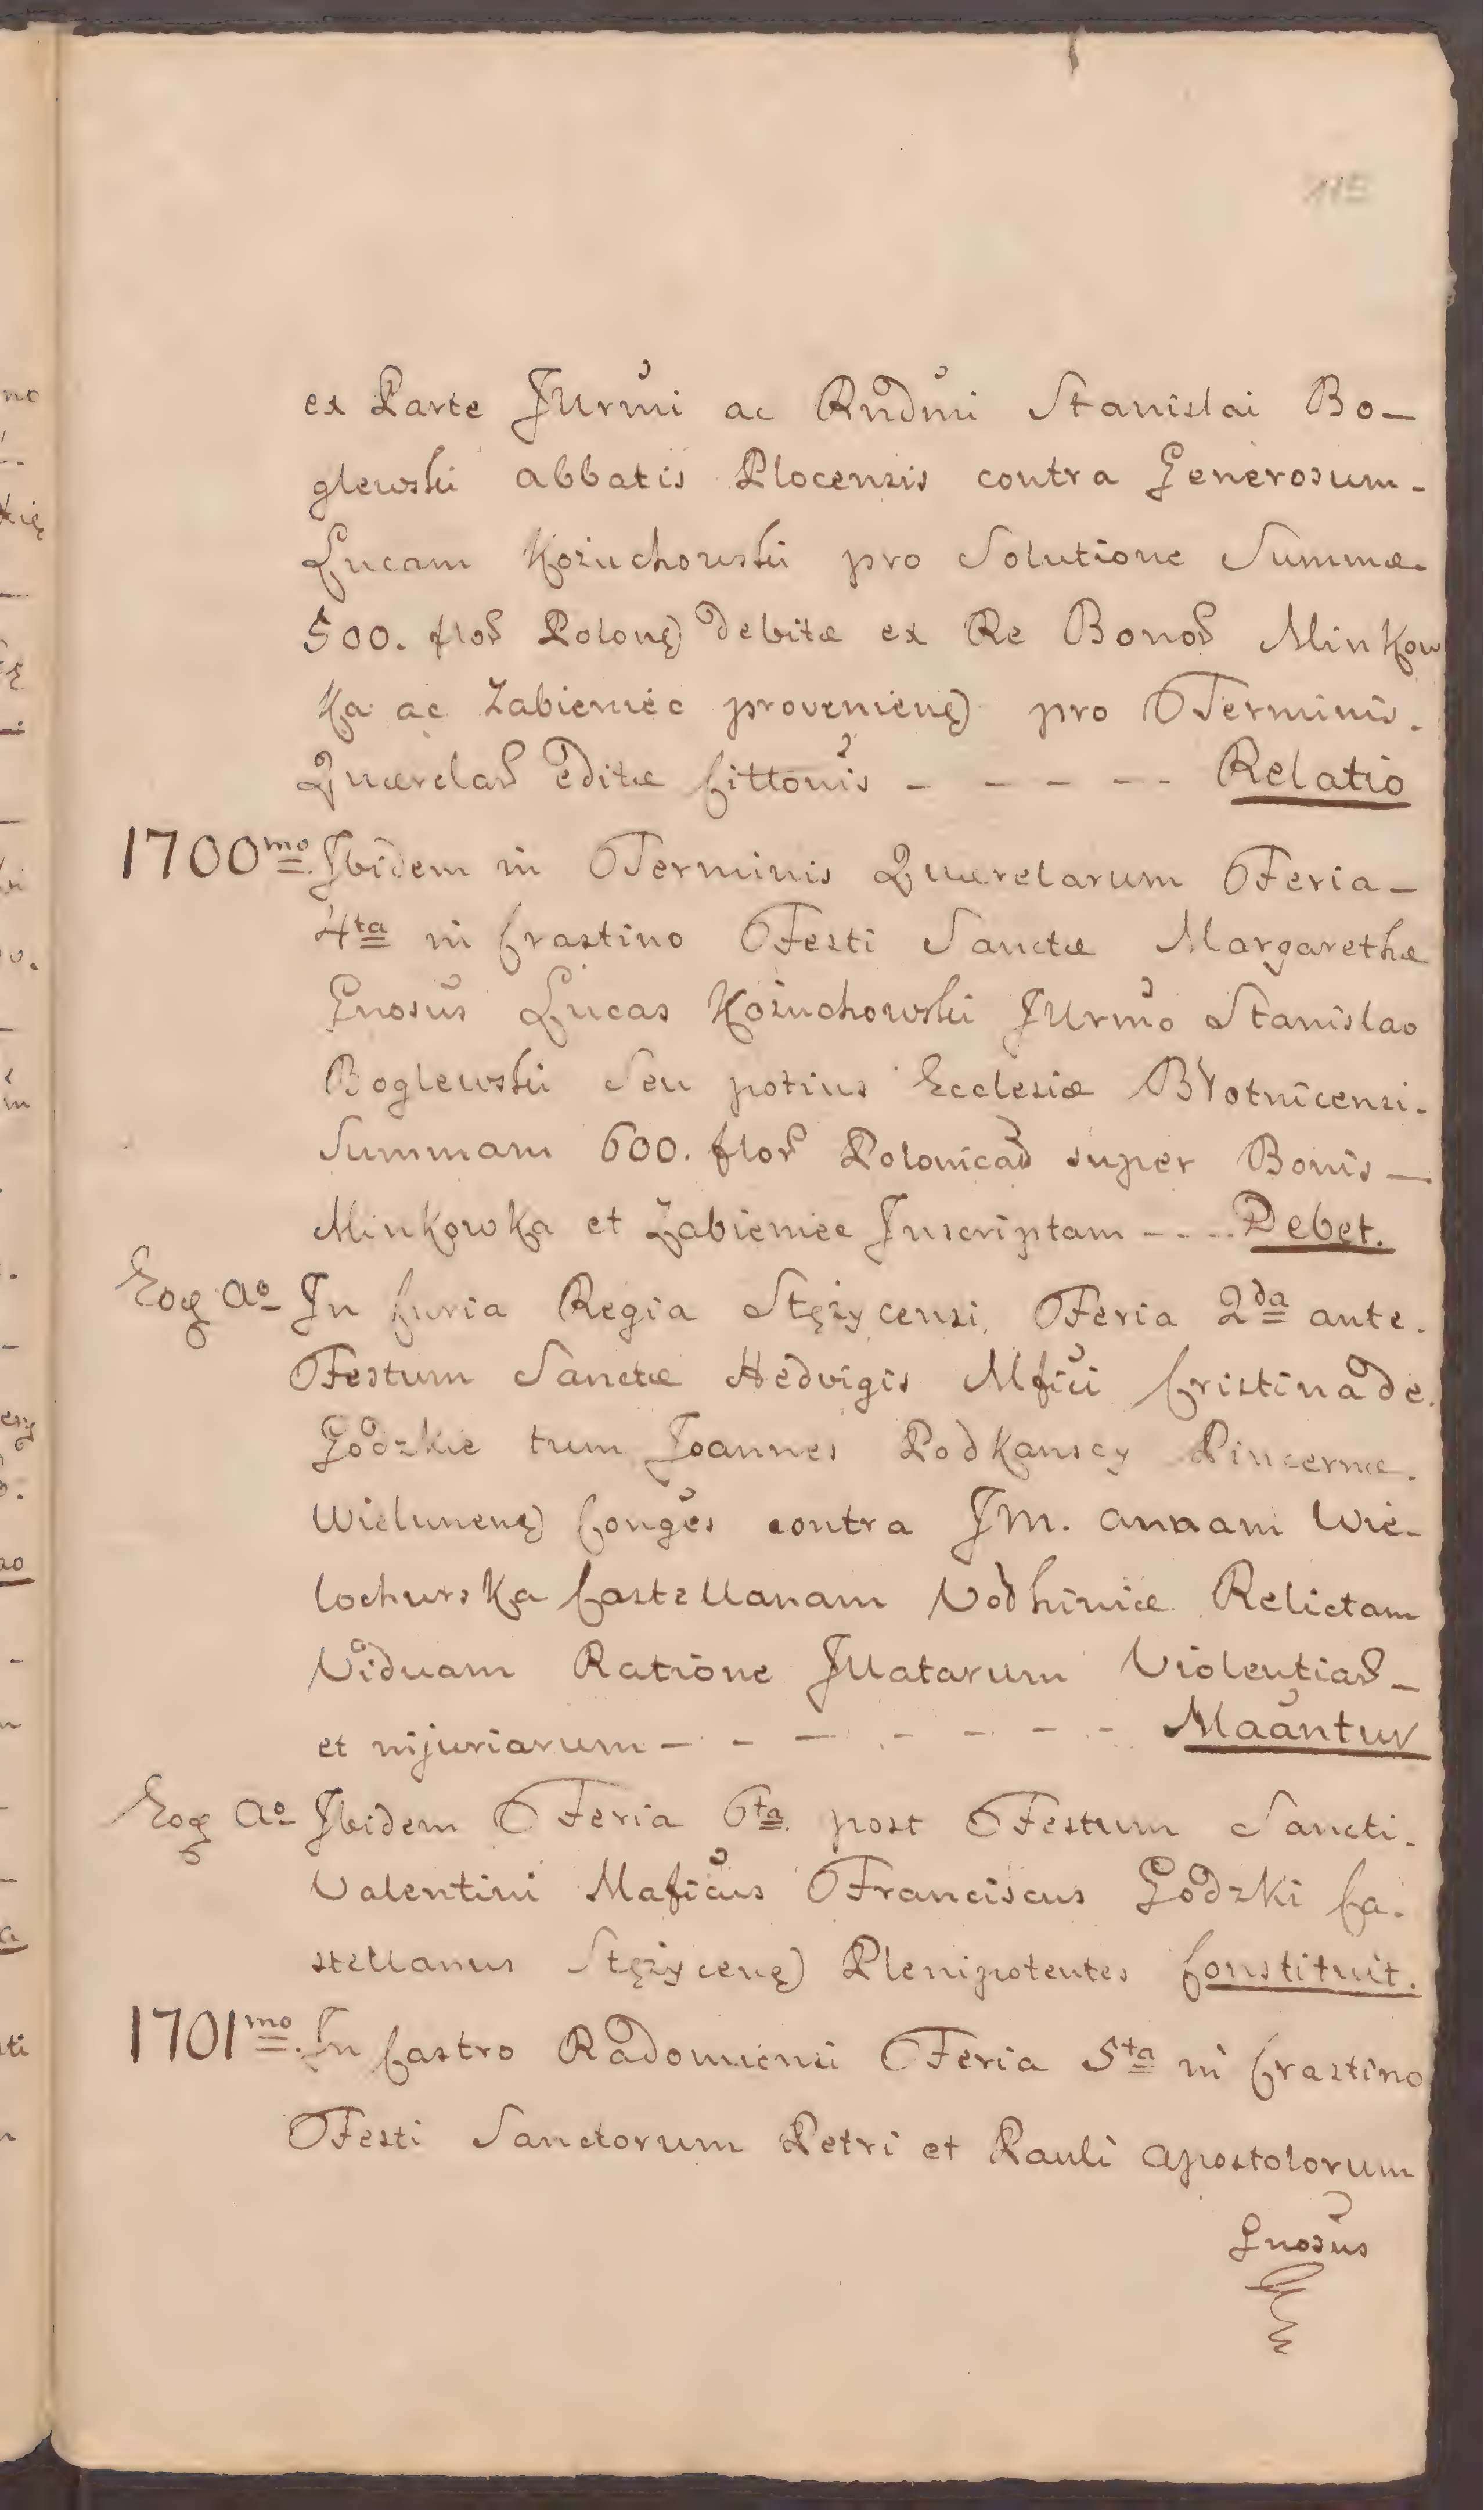 115
ex Parte Jllrmi ac Rndmi Stanislai Bo-
glewski abbatis Plocensis contra Generosum-
Lucam Kożuchowski pro Solutione Summæ.
500. flor Polonę) debitæ ex Re Bonor Minkow
ka ac Zabieniec provenienę) pro Terminis.
Quærelar editæ Cittonis - - - - - Relatio
1700mo. Ibidem in Terminis Quærelarum Feria-
4ta in Crastino Festi Sanctæ Margarethæ
Gnosus Lucas Kożuchowski Jllrmo Stanislao
Boglewski Seu potius Ecclesiæ Błotnicensi.
Summam 600. flor Polonicar super Bonis-
Minkowka et Żabieniec Inscriptam - - - - Debet.
Eog Ao In Curia Regia Stężycensi, Feria 2da ante.
Festum Sanctæ Hedvigis Mfici Cristina de.
Godzkie tum Joannes Podkanscy Pincernæ.
Wielunenę) Conges contra JM. annam Wie-
lochurska Castellanam Vodhiniæ Relictam
Viduam Ratione Illatarum Violentiar-
et injuriarum - - - - - - - - Maantur
Eog Ao Ibidem Feria 6ta. post Festum Sancti.
Valentini Maficus Franciscus Godzki Ca-
stellanus Stężycenę) Plenipotentes Constituit.
1701mo. In Castro Radomiensi Feria 5ta in Crastino
Festi Sanctorum Petri et Pauli apostolorum
Gnosus